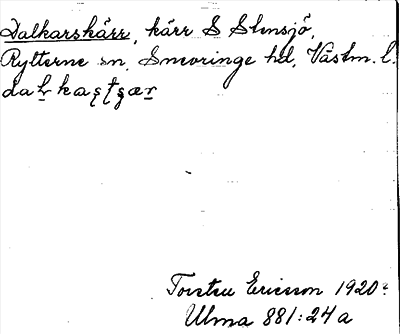 Dalkarskärr, kärr S Stensjö,
Rytterne sn, Snevringe hd, Västm. l.
Torsten Ericsson 1920
Ulma 881:24a